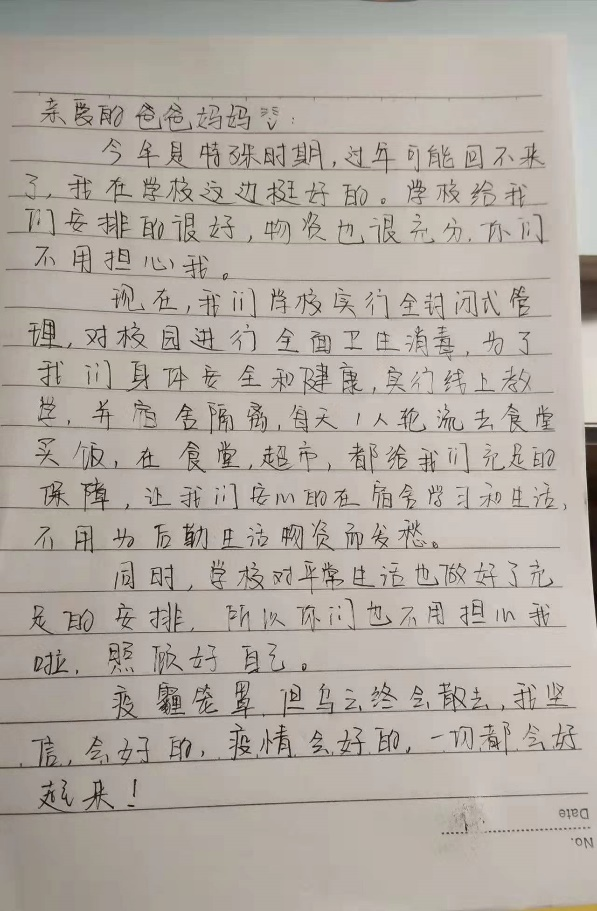 亲爱的爸爸妈妈:
今年是特殊时期,过年可能回不来
了,我在学校这边挺好的。学校给我
们安排的很好,物资也很充分,你们
不用担心我。
现在,我们学校实行全封闭式管
理,对校园进行全面卫生消毒,为了
我们身体安全和健康,实行线上教
学,并宿舍隔离,每天1人轮流去食堂
买饭,在食堂,超市,都给我们充足的
保障,让我们安心的在宿舍学习和生活,
不用为后勤生活物资而发愁。
同时,学校对平常生活也做好了充
足的安排,所以你们也不用担心我
啦,照顾好自己。
疫霾笼罩,但乌云终会散去,我坚
信,会好的,疫情会好的,一切都会好
起来!
Date
No.